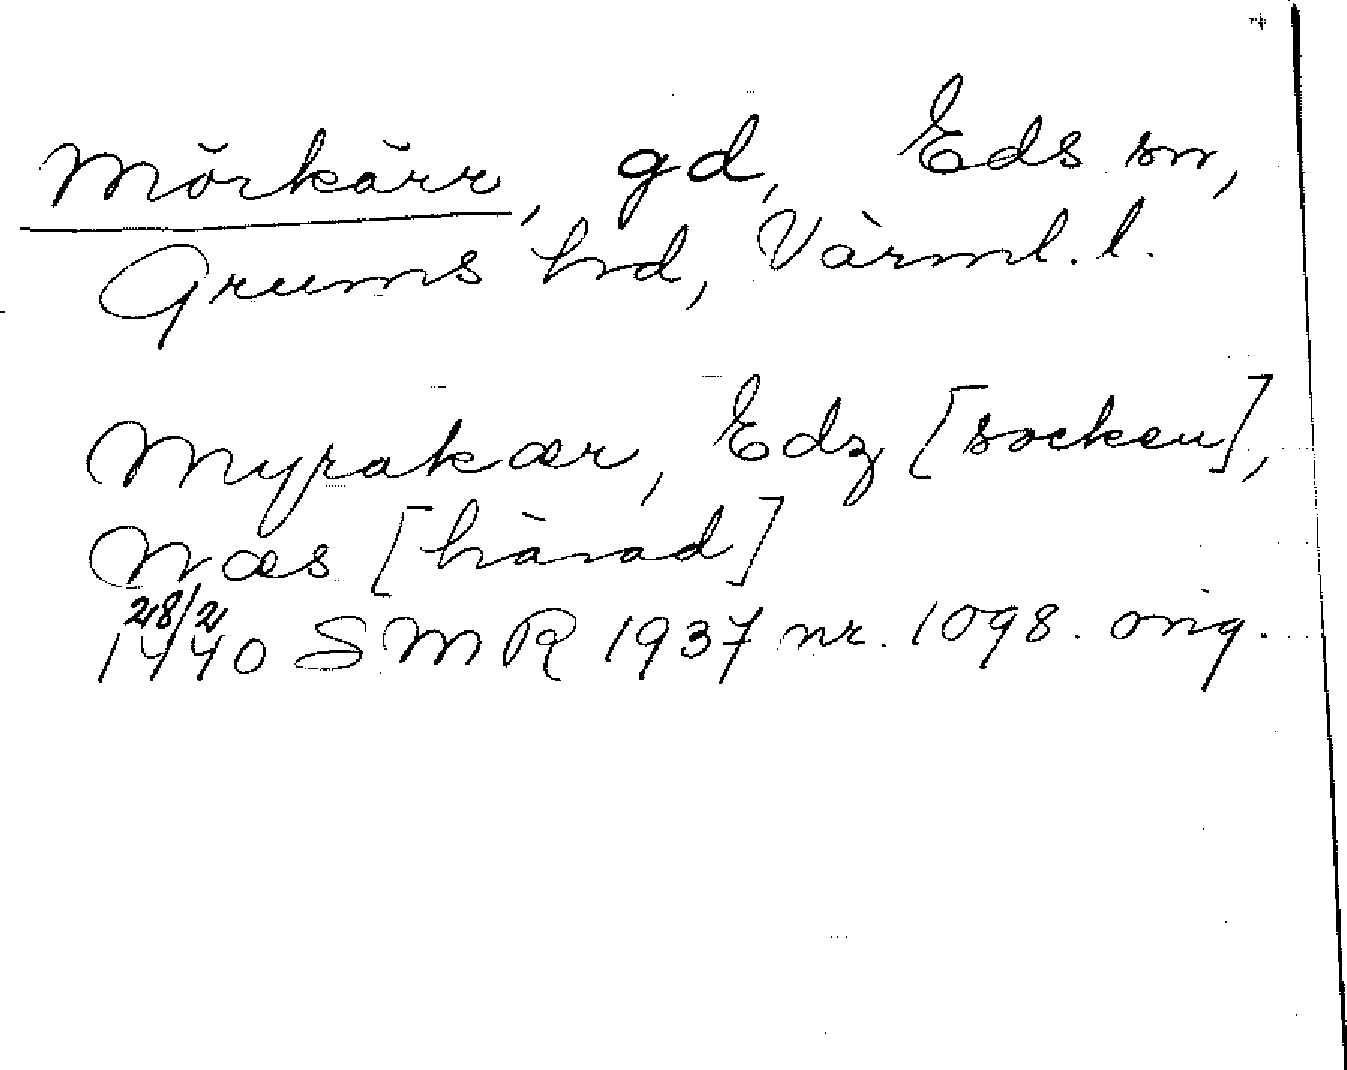 Mörkärr, gd, Eds sn,
Grums hd, Värml. l.
Myrakær, Edz [socken],
Næs [härad]
28/2 1440 SMR 1937 nr. 1098. orig.